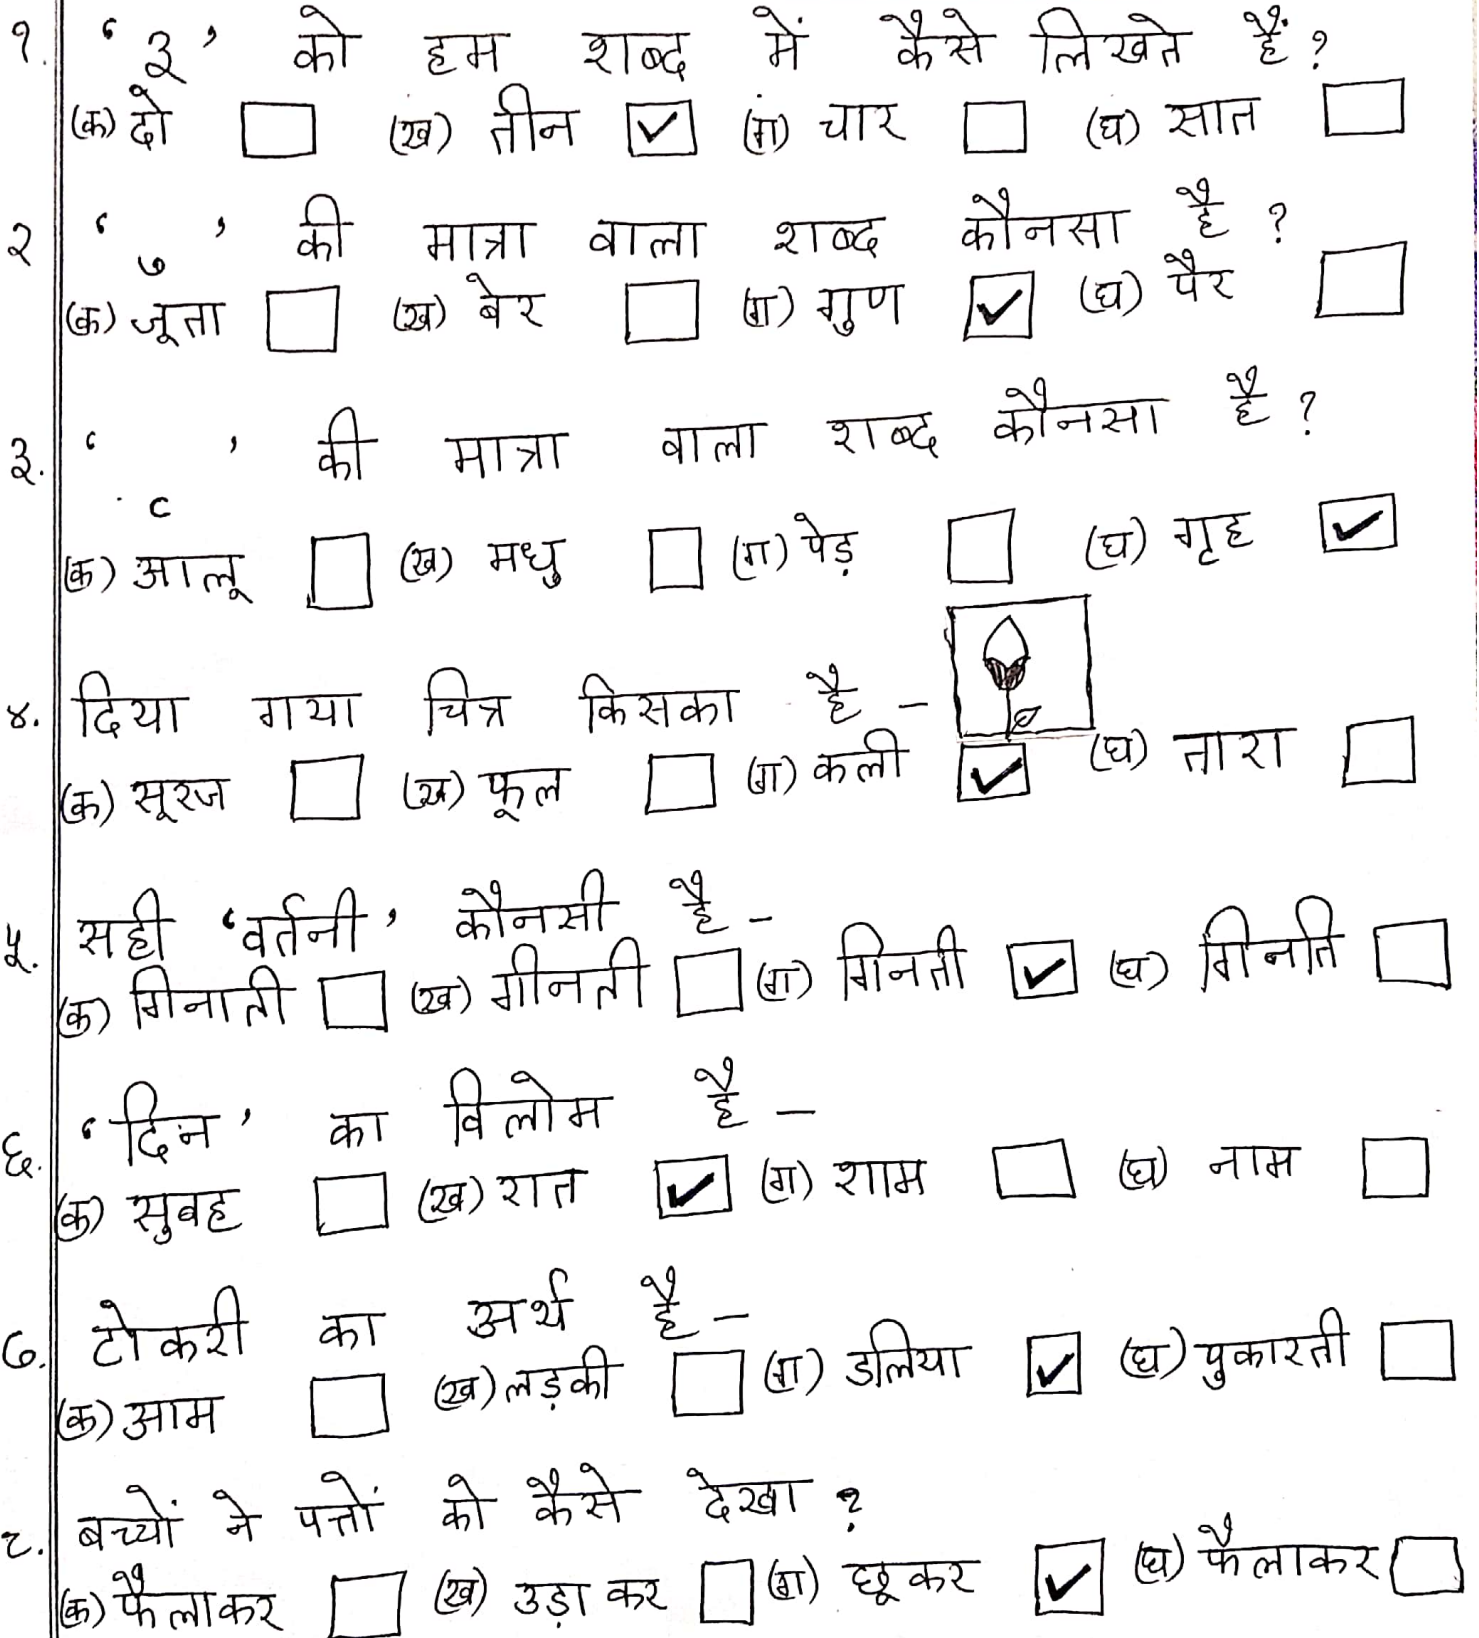 १. '३' को हम शब्द में कैसे लिखते हैं?
(क) दो (ख) तीन ✓ (ग) चार (घ) सात
२ 'ु' की मात्रा वाला शब्द कौनसा है?
(क) जूता (ख) बेर (ग) गुण ✓ (घ) पैर
३. 'ृ' की मात्रा वाला शब्द कौनसा है?
(क) आलू (ख) मधु (ग) पेड़ (घ) गृह ✓
४. दिया गया चित्र किसका है -
(क) सूरज (ख) फूल (ग) कली ✓ (घ) तारा
५. सही 'वर्तनी' कौनसी है -
(क) गिनाती (ख) गीनती (ग) गिनती ✓ (घ) गिनति
६. 'दिन' का विलोम है -
(क) सुबह (ख) रात ✓ (ग) शाम (घ) नाम
७. टोकरी का अर्थ है -
(क) आम (ख) लड़की (ग) डलिया ✓ (घ) पुकारती
८. बच्चों ने पत्तों को कैसे देखा?
(क) फैलाकर (ख) उड़ा कर (ग) छूकर ✓ (घ) फैलाकर